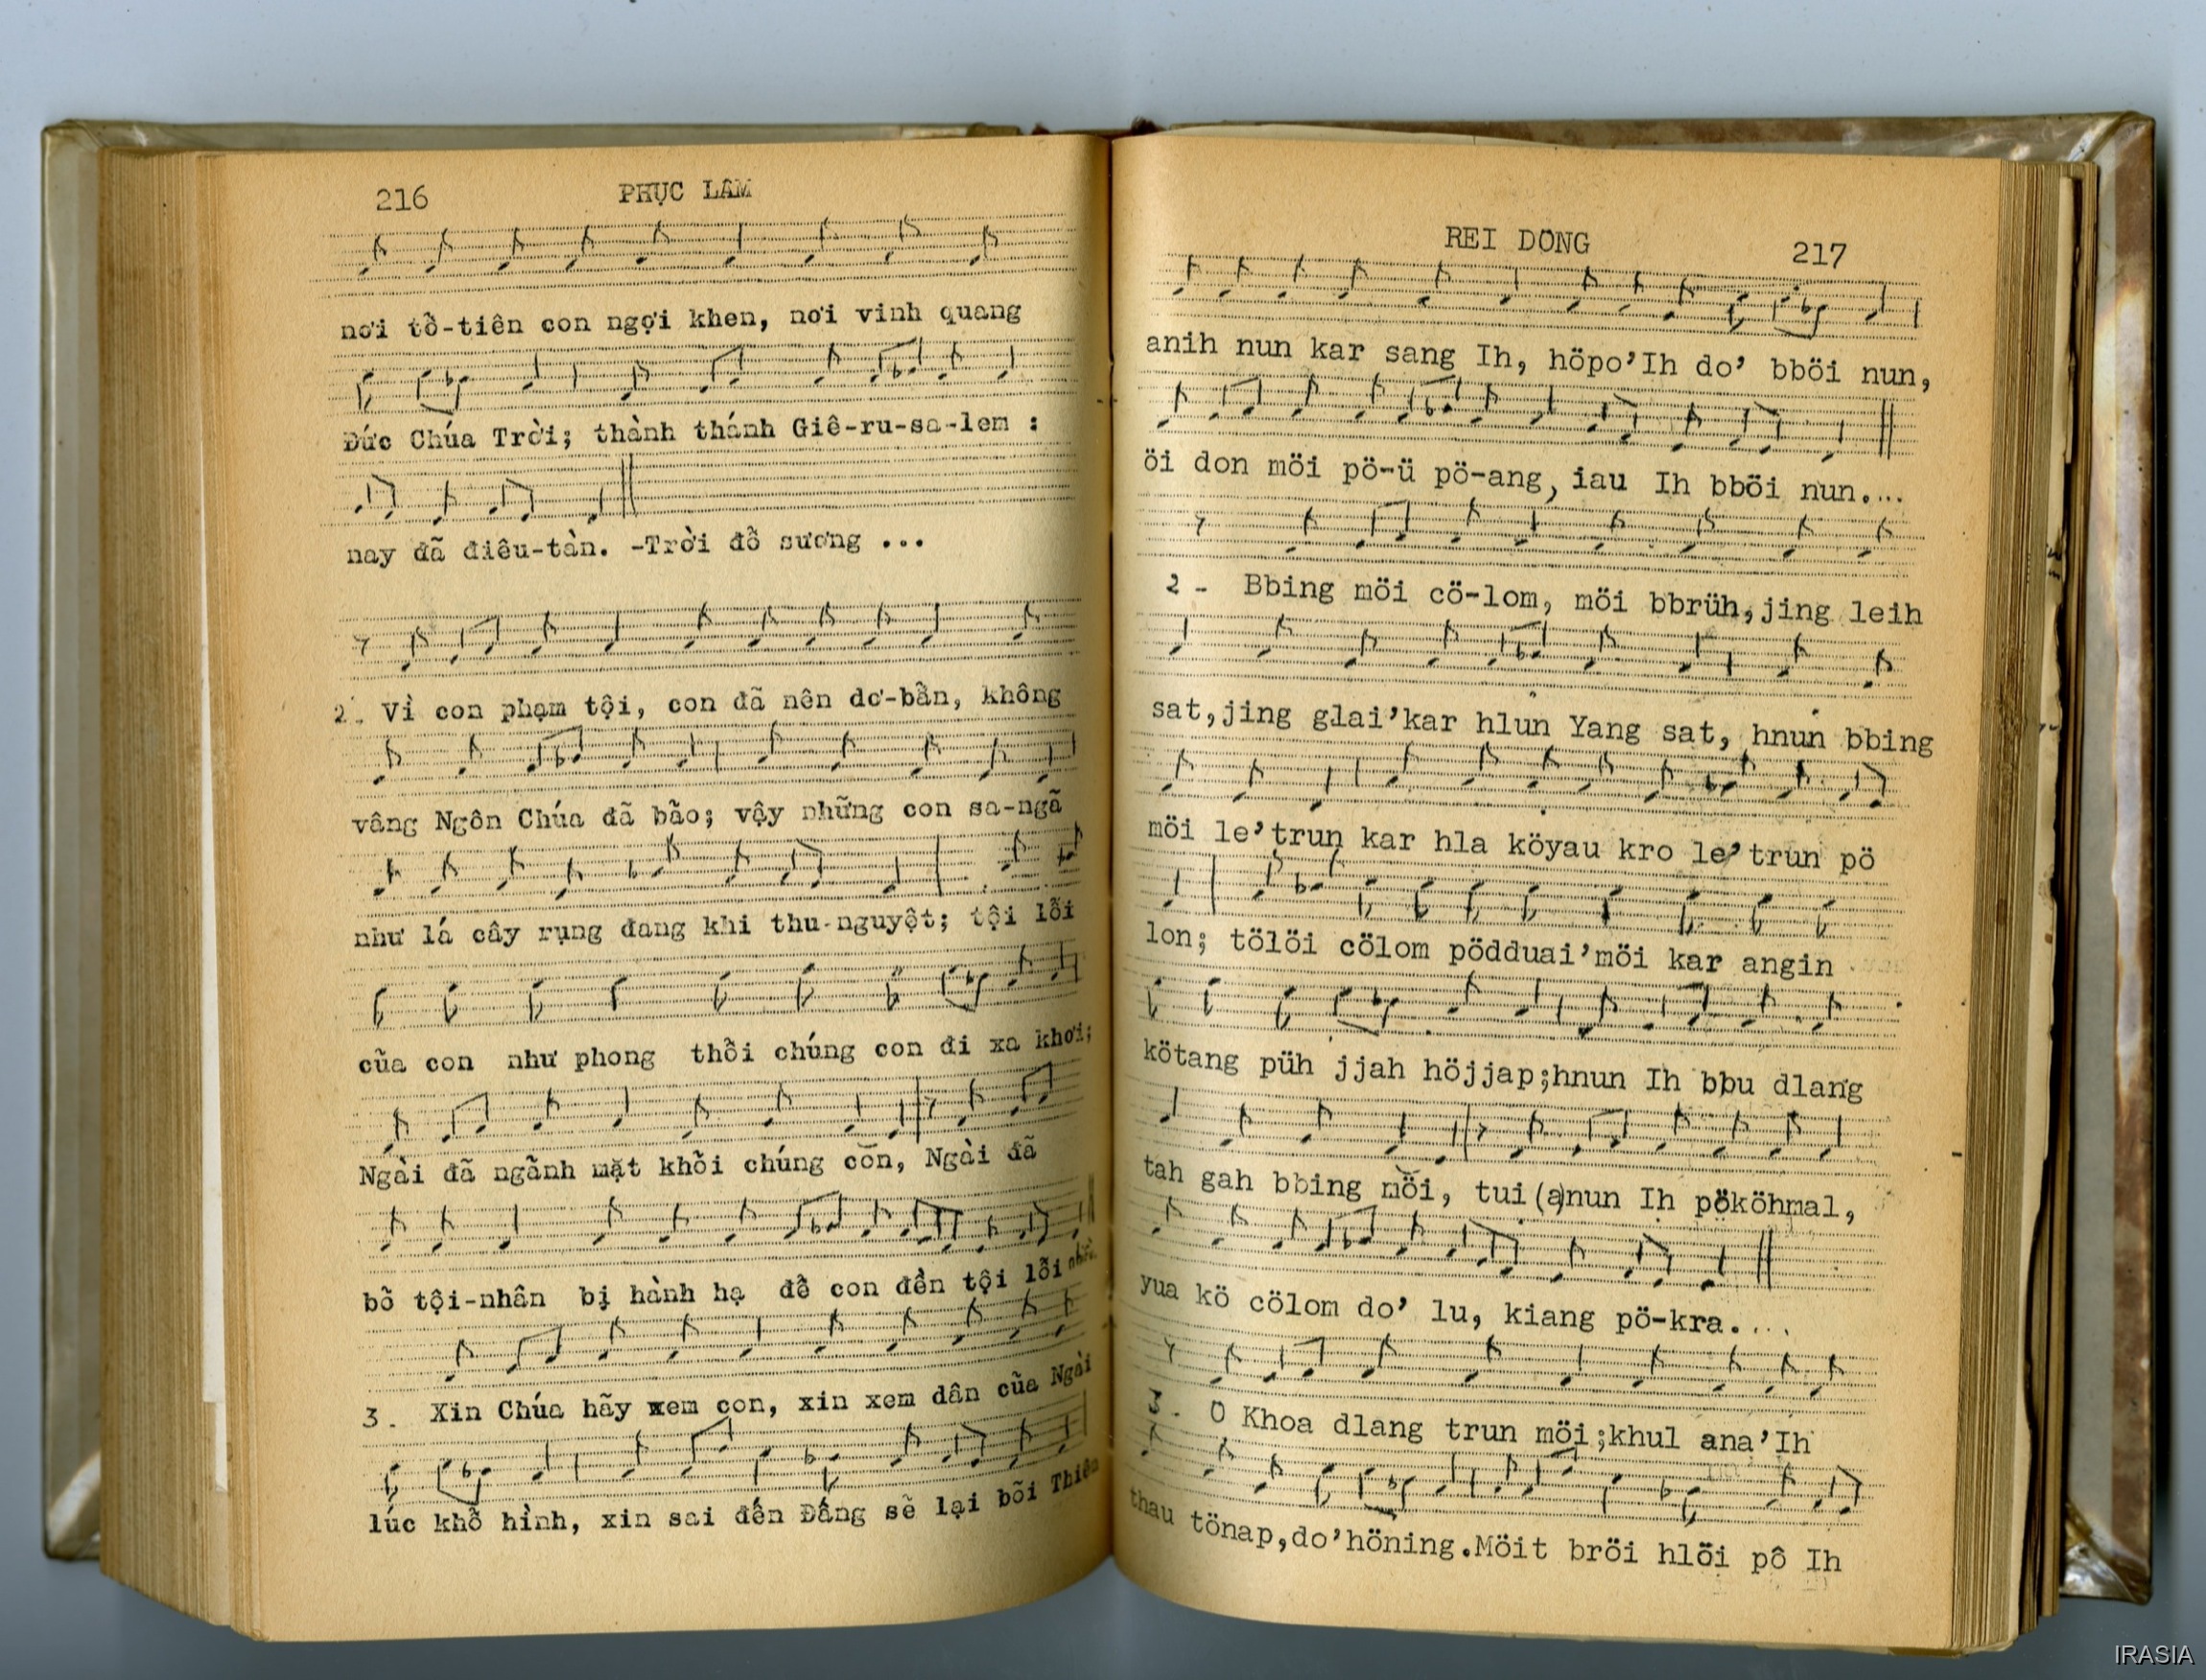 216 PHỤC LÂM
nơi tổ-tiên con ngợi khen, nơi vinh quang
Đức Chúa Trời; thành thánh Giê-ru-sa-lem :
nay đã điêu-tàn. -Trời đổ sương ...
2. Vì con phạm tội, con đã nên dơ-bẩn, không
vâng Ngôn Chúa đã bão; vậy những con sa-ngã
như lá cây rụng đang khi thu-nguyệt; tội lỗi
cũa con như phong thổi chúng con đi xa khơi;
Ngài đã ngãnh mặt khõi chúng con, Ngài đã
bõ tội-nhân bị hành hạ để con đền tội lỗi
3. Xin Chúa hãy xem con, xin xem dân cũa Ngài
lúc khổ hình, xin sai đến Đấng sẽ lại bõi Thiên
REI DONG 217
anih nun kar sang Ih, höpo'Ih do' bböi nun,
öi don möi pö-ü pö-ang, iau Ih bböi nun....
2 - Bbing möi cö-lom, möi bbrüh,jing leih
sat,jing glai'kar hlun Yang sat, hnun bbing
möi le'trun kar hla köyau kro le'trun pö
lon; tölöi cölom pödduai'möi kar angin
kötang püh jjah höjjap;hnun Ih bbu dlang
tah gah bbing möi, tui(a)nun Ih pököhmal,
yua kö cölom do' lu, kiang pö-kra....
3. O Khoa dlang trun möi;khul ana'Ih
thau tönap,do'höning.Möit bröi hlöi pô Ih
IRASIA